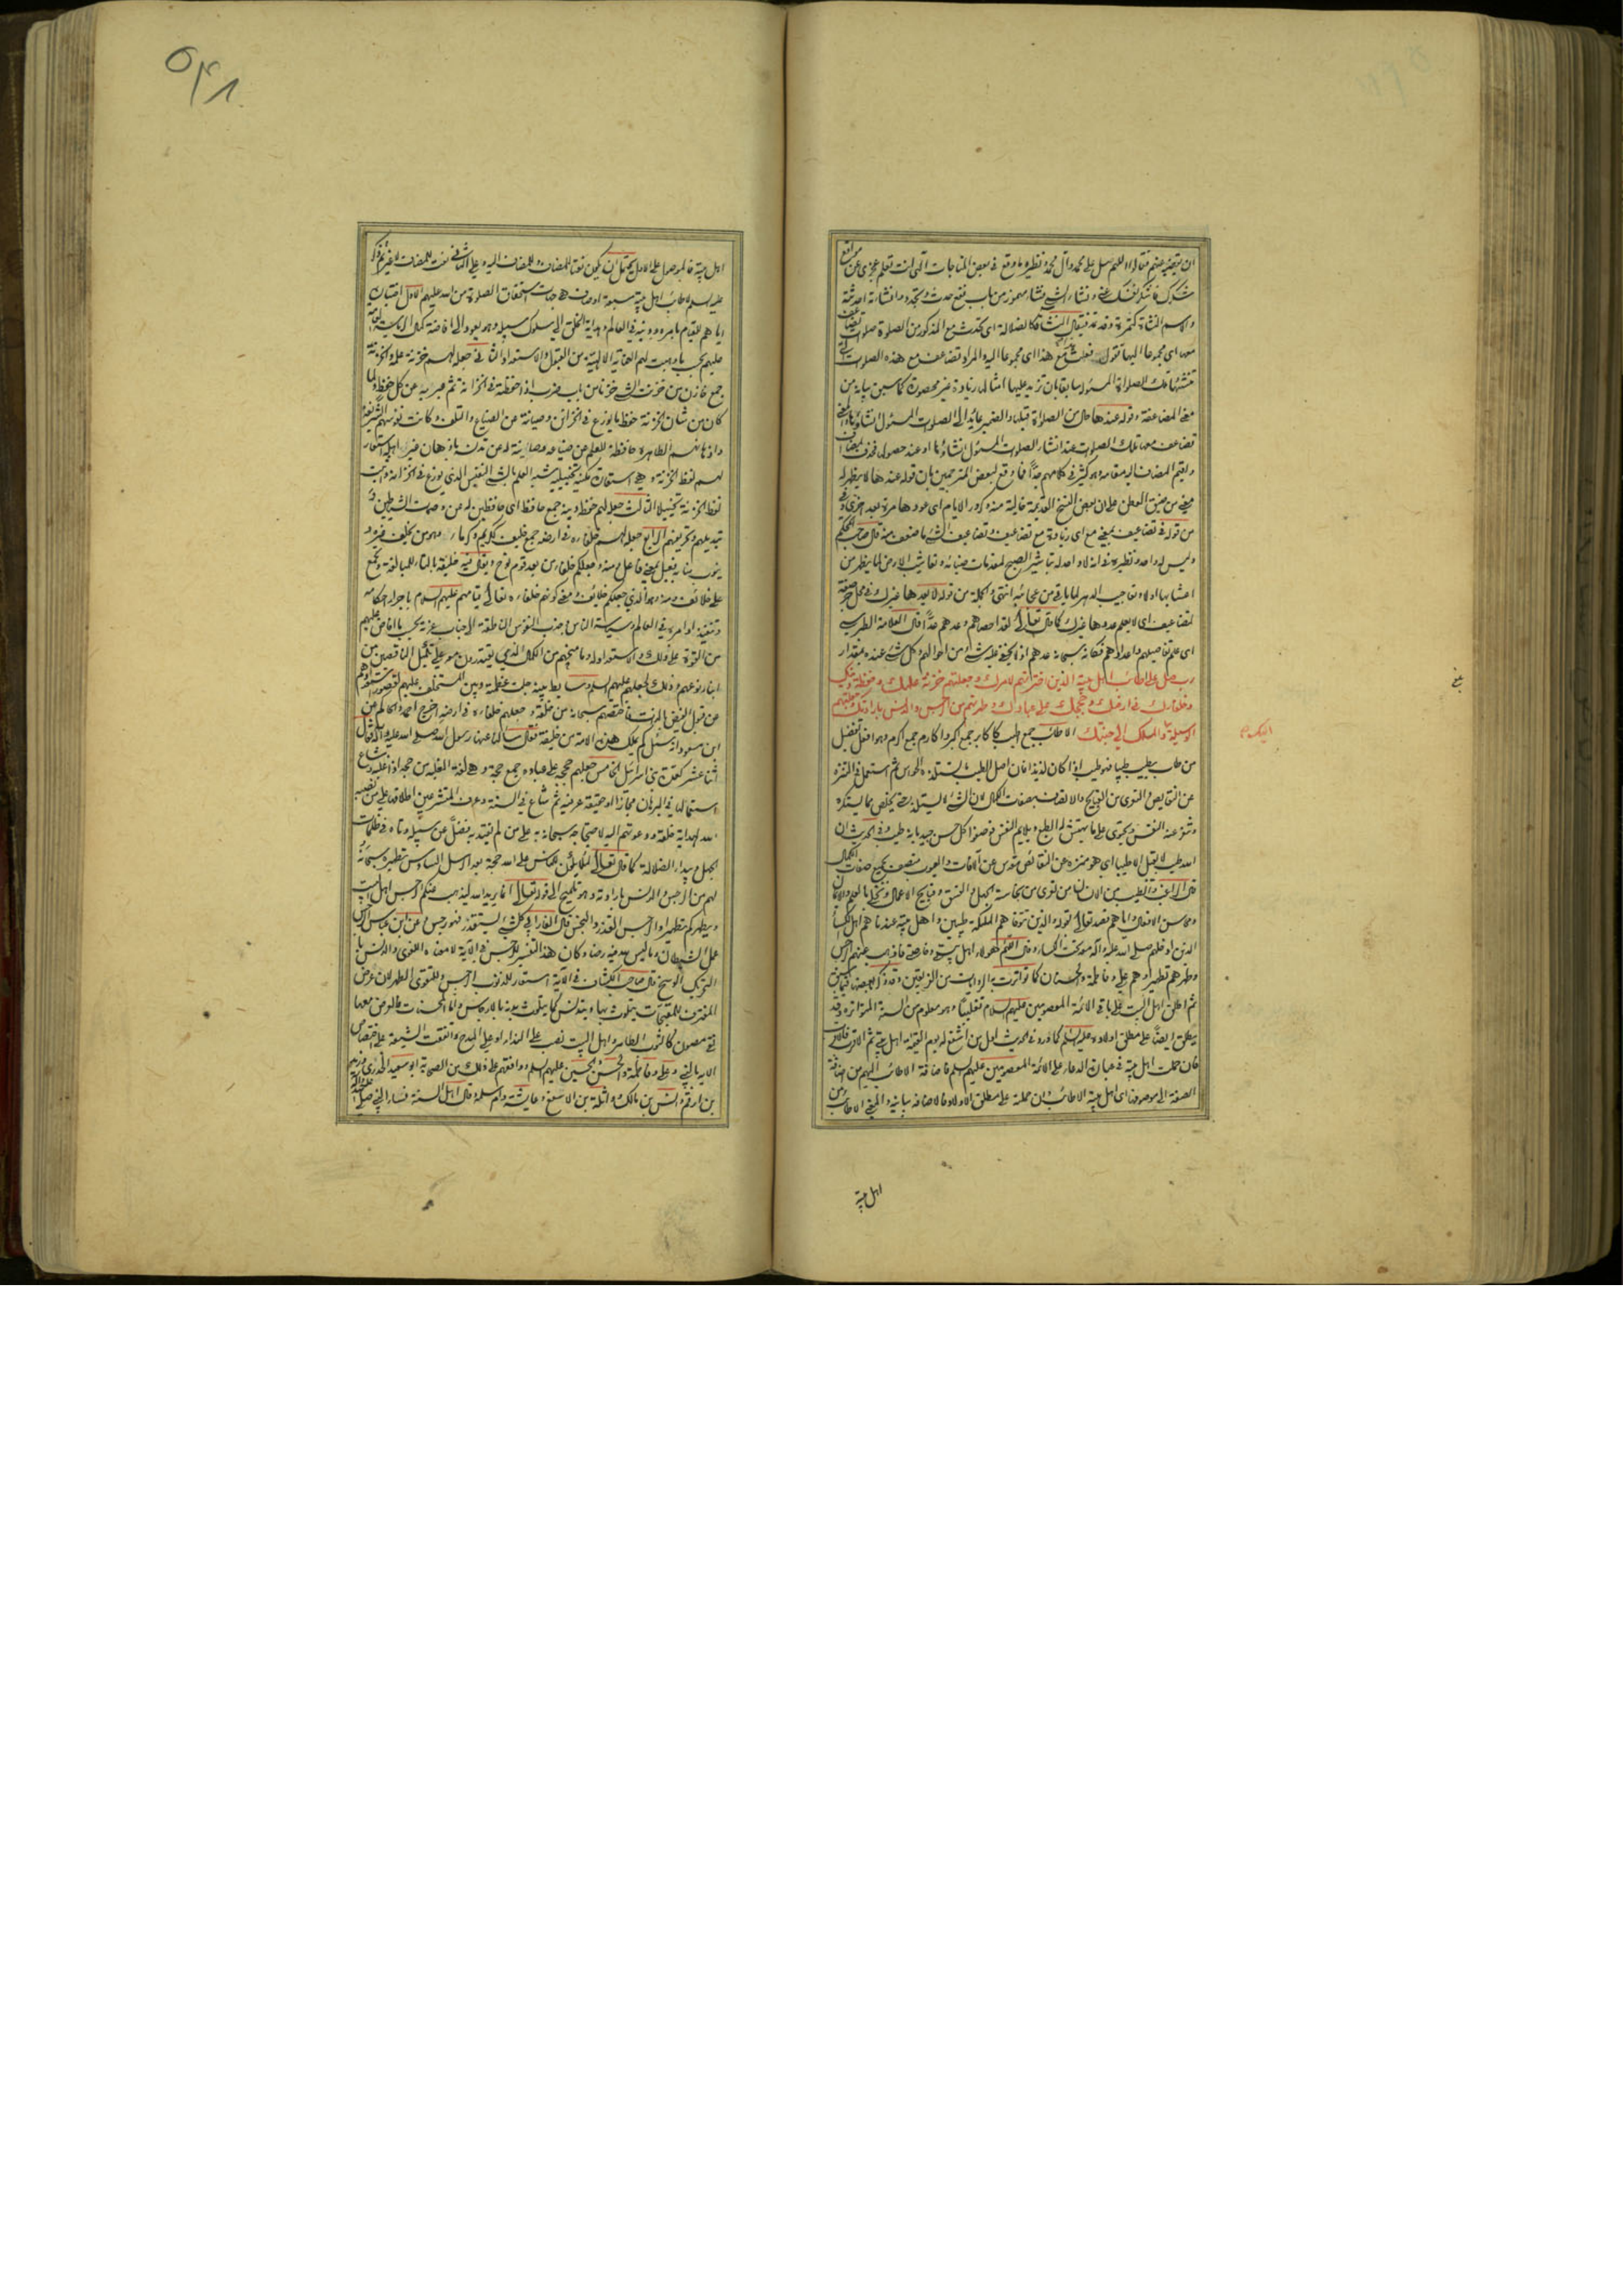 ان يقضيه عنهم فقال اللهم صل على محمد وآل محمد ونظيره ما وقع في بعض المناجات الهي انت تعلم عجزي عن مواقع
شكرك فاشكر نفسك عني ونشاء الشيء نشاء مهموز من باب نفع حدث وتجدد وانشاته احدثته
والاسم النشأة كتمرة وقد تمد فيقال النشاءة كالضلالة اى تحدث مع المذكور من الصلوة صلوات تضاعف
معها اى مجموعا اليها تقول فعلت مع هذا اى مجموعا اليه والمراد تضاعف مع هذه الصلوات التي
تنشئها تلك الصلوات المسئولة سابقا بان تزيد عليها امثالها زيادة غير محصورة كما سبق بيانه من
معنى المضاعفة وقوله عندها حال من الصلوات قبلها والضمير عائد الى الصلوات المسئول انشاؤها والمعنى
تضاعف معها تلك الصلوات عند انشاء الصلوات المسئول انشاؤها او عند حصولها فحذف المضاف
واقيم المضاف اليه مقامه وهو كثير في كلامهم جدا فما وقع لبعض المترجمين بان قوله عندها لا يظهر له
معنى من ضيق العطن على ان بعض النسخ القديمة خالية منه وكرور الايام اى عودها مرة بعد اخرى وفي
من قوله في تضاعيف بمعنى مع اى زيادة مع تضاعيف وتضاعيف الشيء ما ضعف منه قال صاحب المحكم
وليس له واحد ونظيره في انه لا واحد له تباشير الصبح لمقدمات ضيائه وتعاشيب الارض لما يظهر من
اعشابها اولا وتعاجيب الدهر لما ياتي من عجائبه انتهى والجملة من قوله لا يعدها غيرك في محل جر صفة
لتضاعيف اى لا يعلم عددها غيرك كما قال تعالى لقد احصاهم وعدهم عدا قال العلامة الطبرسي
اى علم تفاصيلهم واعدادهم فكانه سبحانه عدهم اذ لا يخفى عليه شيء من احوالهم وكل شيء عنده بمقدار
رب صل على اطائب اهل بيته الذين اخترتهم لامرك وجعلتهم خزنة علمك وحفظة دينك
وخلفاءك في ارضك وحججك على عبادك وطهرتهم من الرجس والدنس بارادتك وجعلتهم
الوسيلة اليك والمسلك الى جنتك الاطائب جمع اطيب كاكابر جمع اكبر واكارم جمع اكرم وهو افعل تفضيل
من طاب يطيب طيبا فهو طيب اذا كان لذيذا فان اصل الطيب ما تستلذه الحواس ثم استعمل في المتنزه
عن النقايص والتبرى من القبايح والاتصاف بصفات الكمال لان الشيء لا يستلذ حتى يخلص مما يستكره
وتنفر عنه النفس ويحتوى على ما يهتش له الطبع ويلايم النفس فوصفوا كل حسن جيد بانه طيب وفي الحديث ان
الله طيب لا يقبل الا طيبا اى هو منزه عن النقائص مقدس عن الآفات والعيوب متصف بجميع صفات الكمال
قال الراغب والطيب من الانسان من تعرى من نجاسة الجهل والفسق وقبايح الاعمال وتحلى بالعلم والايمان
ومحاسن الافعال واياهم قصد تعالى بقوله الذين تتوفاهم الملئكة طيبين واهل بيته عندنا هم اهل الكساء
الذين ادخلهم صلى الله عليه وآله معه تحت الكساء وقال اللهم هؤلاء اهل بيتي وخاصتي فاذهب عنهم الرجس
وطهرهم تطهيرا وهم علي وفاطمة والحسنان كما تواترت به الروايات من الفريقين
ثم اطلق اهل البيت على باقي الائمة المعصومين عليهم السلام تغليبا وهو معلوم من السنة المتواترة وقد
يطلق ايضا على مطلق اولاده عليه السلام كما ورد في الحديث اول من اشفع له يوم القيمة اهل بيتي ثم الاقرب فالاقرب
فان حملت اهل بيته في عبارة الدعاء على الائمة المعصومين عليهم السلم فاضافة الاطائب اليهم من اضافة
الصفة الى موصوفها اى اهل بيته الاطائب وان حملته على مطلق الاولاد فالاضافة بيانية والمعنى الاطائب من
اهل بيته
اليك
بلغ
٥٣١
اهل بيته فالموصول على الاول يحتمل ان يكون نعتا للمضاف وللمضاف اليه وعلى الثاني نعت للمضاف لا غير ثم ذكر
عليه السلم لاطائب اهل بيته سبعة اوصاف هي جهات استحقاق الصلوة من الله عليهم الاول اختياره
اياهم للقيام بامره ودينه في العالم وهداية الخلق الى سلوك سبيله وهو يعود الى افاضة كمال
عليهم بحسب ما وهبت لهم العناية الالهية من القبول والاستعداد الثاني جعله لهم خزنة علمه والخزنة
جمع خازن من خزنت الشيء خزنا من باب ضرب اذا حفظته في الخزانة ثم عبر به عن كل حفظ ولما
كان من شان الخزنة حفظ ما يوزع في الخزائن وصيانته عن الضياع والتلف وكانت نفوسهم الشريفة
واذهانهم الطاهرة حافظة للعلم من ضياعه وصاينة له عن تدنسه باذهان غير اهله استعار
لهم لفظ الخزنة وهي استعارة مكنية تخييلية شبه العلم بالشيء النفيس الذي يوزع في الخزانة واثبت
لفظ الخزنة تخييلا الثالث جعله لهم حفظة دينه جمع حافظ اى حافظين له من وصمات الشياطين و
تبديلهم وتحريفهم الرابع جعله لهم خلفاءه في ارضه جمع خليف ككريم وكرماء وهو من يخلف غيره و
ينوب منابه فعيل بمعنى فاعل ومنه وجعلكم خلفاء من بعد قوم نوح ويقال فيه خليفة بالتاء للمبالغة ويجمع
على خلائف ومنه وهو الذي جعلكم خلائف ومعنى كونهم خلفاءه تعالى قيامهم عليهم السلام باجراء احكامه
وتنفيذ اوامره في العالم وسياسة الناس وجذب النفوس الناطقة الى جناب عزته بحسب ما افاض عليهم
من القوة على ذلك والاستعداد له وما منحهم من الكمال الذي يقتدرون معه على تكميل الناقصين من
ابناء نوعهم وذلك لجعلهم عليهم السلم وسايط بينه جلت عظمته وبين المستخلف عليهم لقصور استعدادهم
عن قبول الفيض بالذات فاختصهم سبحانه من خلقه وجعلهم خلفاءه في ارضه اخرج احمد والحاكم عن
ابن مسعود انه سئل كم يملك هذه الامة من خليفة فقال سالنا عنها رسول الله صلى الله عليه وآله فقال
اثنا عشر كعدة نقباء بني اسرائيل الخامس جعلهم حججه على عباده جمع حجة وهي لغة الغلبة من حجه اذا غلبه وشاع
استعمالها في البرهان مجازا او حقيقة عرفية ثم شاع في السنة وعرف المتشرعين اطلاقها على من نصبه
الله لهداية خلقه ودعوتهم اليه لاحتجاجه سبحانه به على من لم يهتد به بفضل عن سبيله وتاه في ظلمات
الجهل وبيداء الضلالة كما قال تعالى لئلا يكون للناس على الله حجة بعد الرسل السادس تطهيره سبحانه
لهم من الرجس والدنس بارادته وهو تلميح الى قوله تعالى انما يريد الله ليذهب عنكم الرجس اهل البيت
ويطهركم تطهيرا والرجس القذر والنجس قال الفارابي كل شيء يستقذر فهو رجس وعن ابن عباس الرجس
عمل الشيطان وما ليس لله فيه رضا وكان هذا التفسير للرجس في الآية لا معناه اللغوي والدنس با
لتحريك الوسخ قال صاحب الكشاف في الآية استعار للذنوب الرجس وللتقوى الطهر لان عرض
المقترف للمقبحات يتلوث بها ويتدنس كما يتلوث بدنه بالارجاس واما المحسنات فالعرض معها
نقي مصون كالثوب الطاهر واهل البيت نصب على النداء او على المدح واتفقت الشيعة على اختصاص
الآية بالنبي وعلي وفاطمة والحسن والحسين عليهم السلم ووافقهم على ذلك من الصحابة ابو سعيد الخدري وزيد
بن ارقم وانس بن مالك وواثلة بن الاسقع وعايشة وام سلمة وقال اهل السنة نساء النبي صلى الله عليه وآله